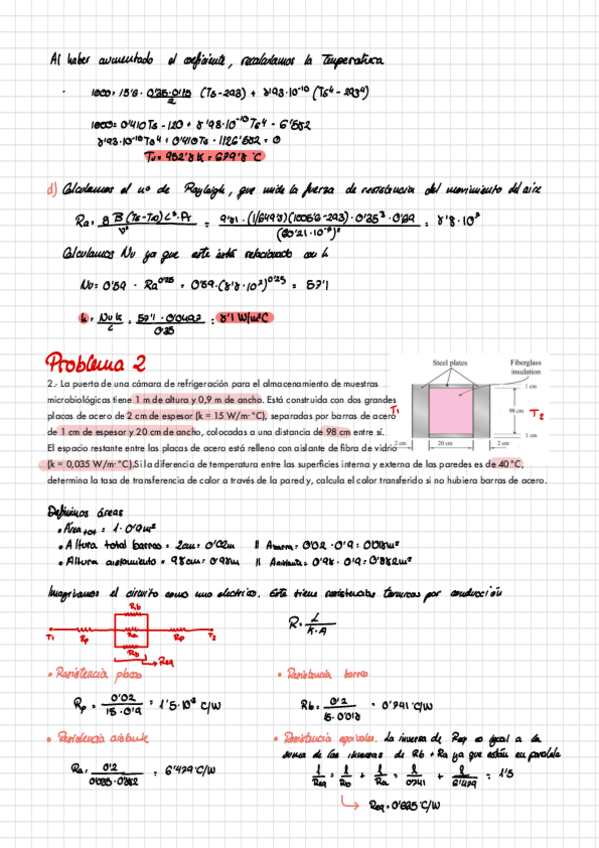 Al haber aumentado el coeficiente, recalculamos la Temperatura
1000 = 15'6 · 0'35·0'115/2 (Ts - 293) + 8'93·10⁻¹⁰ (Ts⁴ - 293⁴)
1000 = 0'410Ts - 120 + 8'93·10⁻¹⁰ Ts⁴ - 6'582
8'93·10⁻¹⁰ Ts⁴ + 0'410Ts - 1126'582 = 0
= 952'8 K = 679'8 °C
d) Calculamos el nº de Rayleigh, que mide la fuerza de resistencia del movimiento del aire
Calculamos Nu ya que este está relacionado con h
Nu = 0'59 · Ra^0'25 = 0'59·(8'8·10⁷)^0'25 = 57'1
h = Nu k/L = 57'1 · 0'0497/0'35 = 8'1 W/m²C
Problema 2
2.- La puerta de una cámara de refrigeración para el almacenamiento de muestras
microbiológicas tiene 1 m de altura y 0,9 m de ancho. Está construida con dos grandes
placas de acero de 2 cm de espesor (k = 15 W/m·°C), separadas por barras de acero
de 1 cm de espesor y 20 cm de ancho, colocadas a una distancia de 98 cm entre sí.
El espacio restante entre las placas de acero está relleno con aislante de fibra de vidrio
(k = 0,035 W/m·°C).Si la diferencia de temperatura entre las superficies interna y externa de las paredes es de 40 °C,
determina la tasa de transferencia de calor a través de la pared y, calcula el calor transferido si no hubiera barras de acero.
Steel plates
Fiberglass
insulation
1 cm
T1
98 cm
T2
1 cm
2 cm
20 cm
2 cm
Definimos áreas
• Area tot = 1 · 0'9m²
• Altura total barras = 2cm = 0'02m || Abarra = 0'02 · 0'9 = 0'018m²
• Altura aislamiento = 98cm = 0'98m || Aaislante = 0'98 · 0'9 = 0'882m²
Imaginamos el circuito como uno electrico. Este tiene resistencias termicas por conducción
Rb
T1 Rp Ra Rp T2
Rb
Req
R = L/K·A
• Resistencia placas
Rp = 0'02/15·0'9 = 1'5·10⁻³ C/W
• Resistencia barras
Rb = 0'2/15·0'018 = 0'741 C/W
• Resistencia aislante
Ra = 0'2/0'035·0'882 = 6'479 C/W
• Resistencia equivalen. La inversa de Req es igual a la
suma de las inversas de Rb + Ra ya que están en paralelo
1/Req = 1/Rb + 1/Ra = 1/0'741 + 1/6'479 = 1'5
Req = 0'665 C/W